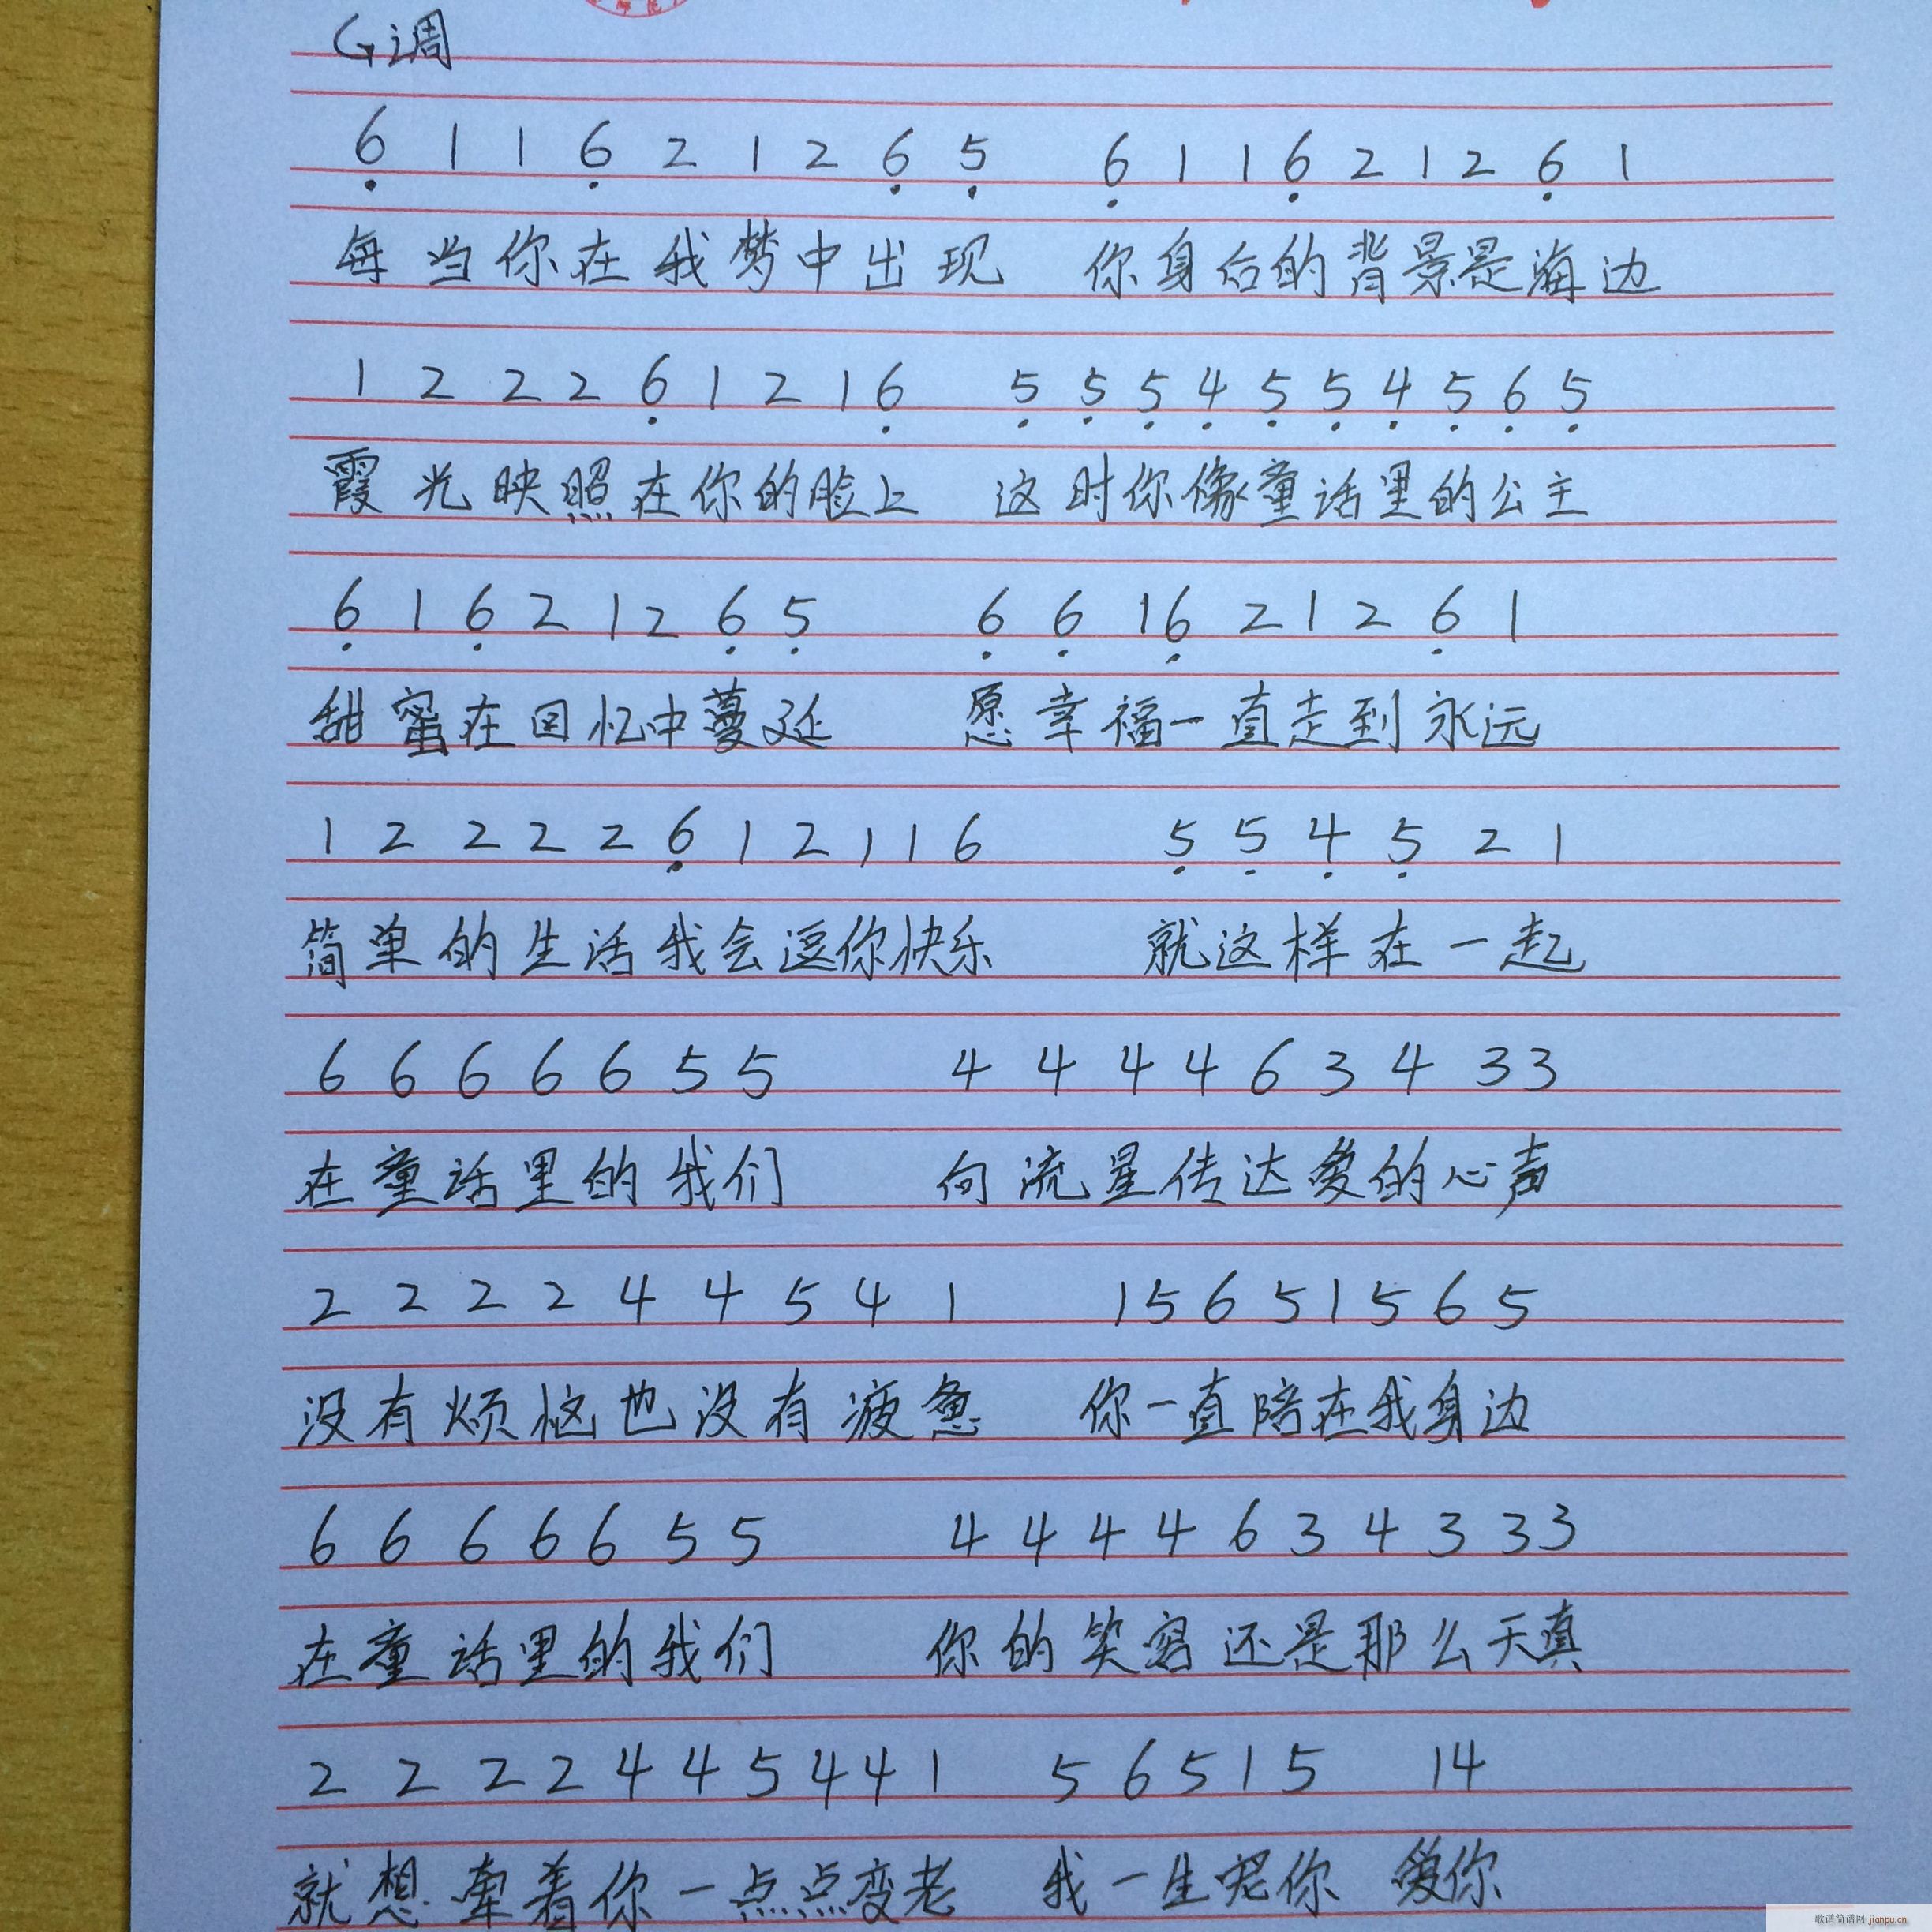 G调
6̣ 1 1 6̣ 2 1 2 6̣ 5̣ 6̣ 1 1 6̣ 2 1 2 6̣ 1
每当你在我梦中出现 你身后的背景是海边
1 2 2 2 6̣ 1 2 1 6̣ 5̣ 5̣ 5̣ 4̣ 5̣ 5̣ 4̣ 5̣ 6̣ 5̣
霞光映照在你的脸上 这时你像童话里的公主
6̣ 1 6̣ 2 1 2 6̣ 5̣ 6̣ 6̣ 1 6̣ 2 1 2 6̣ 1
甜蜜在回忆中蔓延 愿幸福一直走到永远
1 2 2 2 2 6̣ 1 2 1 1 6 5̣ 5̣ 4̣ 5̣ 2 1
简单的生活我会逗你快乐 就这样在一起
6 6 6 6 6 5 5 4 4 4 4 6 3 4 3 3
在童话里的我们 向流星传达爱的心声
2 2 2 2 4 4 5 4 1 1 5 6 5 1 5 6 5
没有烦恼也没有疲惫 你一直陪在我身边
6 6 6 6 6 5 5 4 4 4 4 6 3 4 3 3 3
在童话里的我们 你的笑容还是那么天真
2 2 2 2 4 4 5 4 4 1 5 6 5 1 5 1 4
就想牵着你一点点变老 我一生宠你 爱你
歌谱简谱网 jianpu.cn